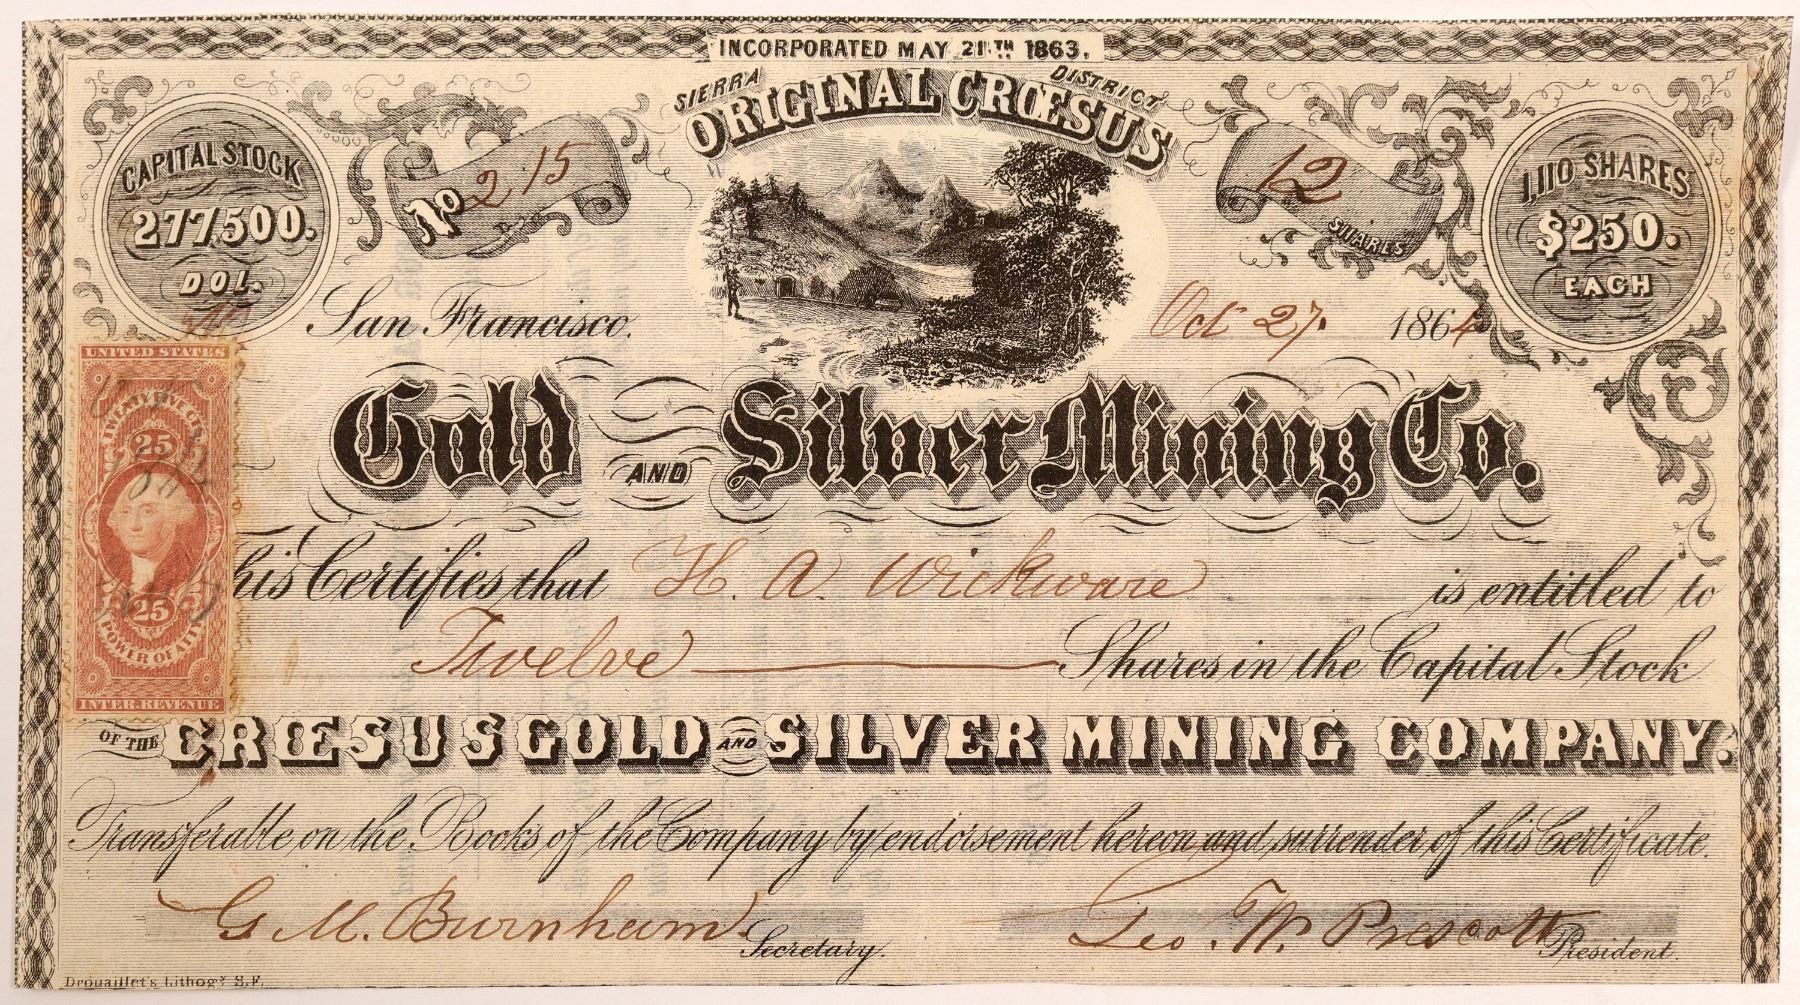 INCORPORATED MAY 21.TH 1863.
SIERRA DISTRICT
ORIGINAL CRŒSUS
CAPITAL STOCK
277500.
DOL.
No 215
12
SHARES
1,110 SHARES
$250.
EACH
San Francisco. Oct 27. 1864
Gold AND Silver Mining Co.
UNITED STATES
TWENTY FIVE CTS
25
25
POWER OF ATT'Y
INTER. REVENUE
his Certifies that H. A. Wickware is entitled to
Twelve Shares in the Capital Stock
OF THE CRŒSUS GOLD AND SILVER MINING COMPANY.
Transferable on the Books of the Company by endorsement hereon and surrender of this Certificate.
G. M. Burnham. Secretary. Geo. W. Prescott President.
Drouaillet's Lithogy S.F.